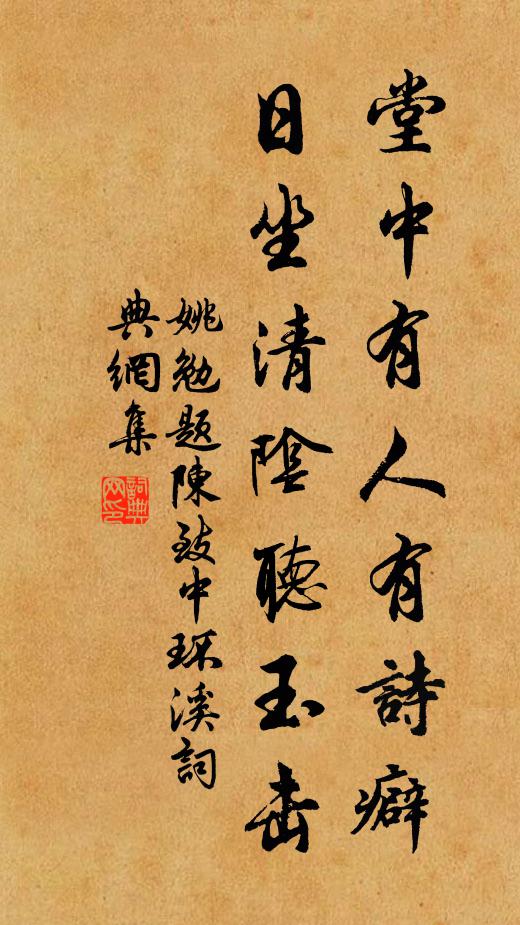 堂中有人有詩癖
日坐清陰聽玉击
姚勉題陳致中环溪詞
典網集
詞典
网印